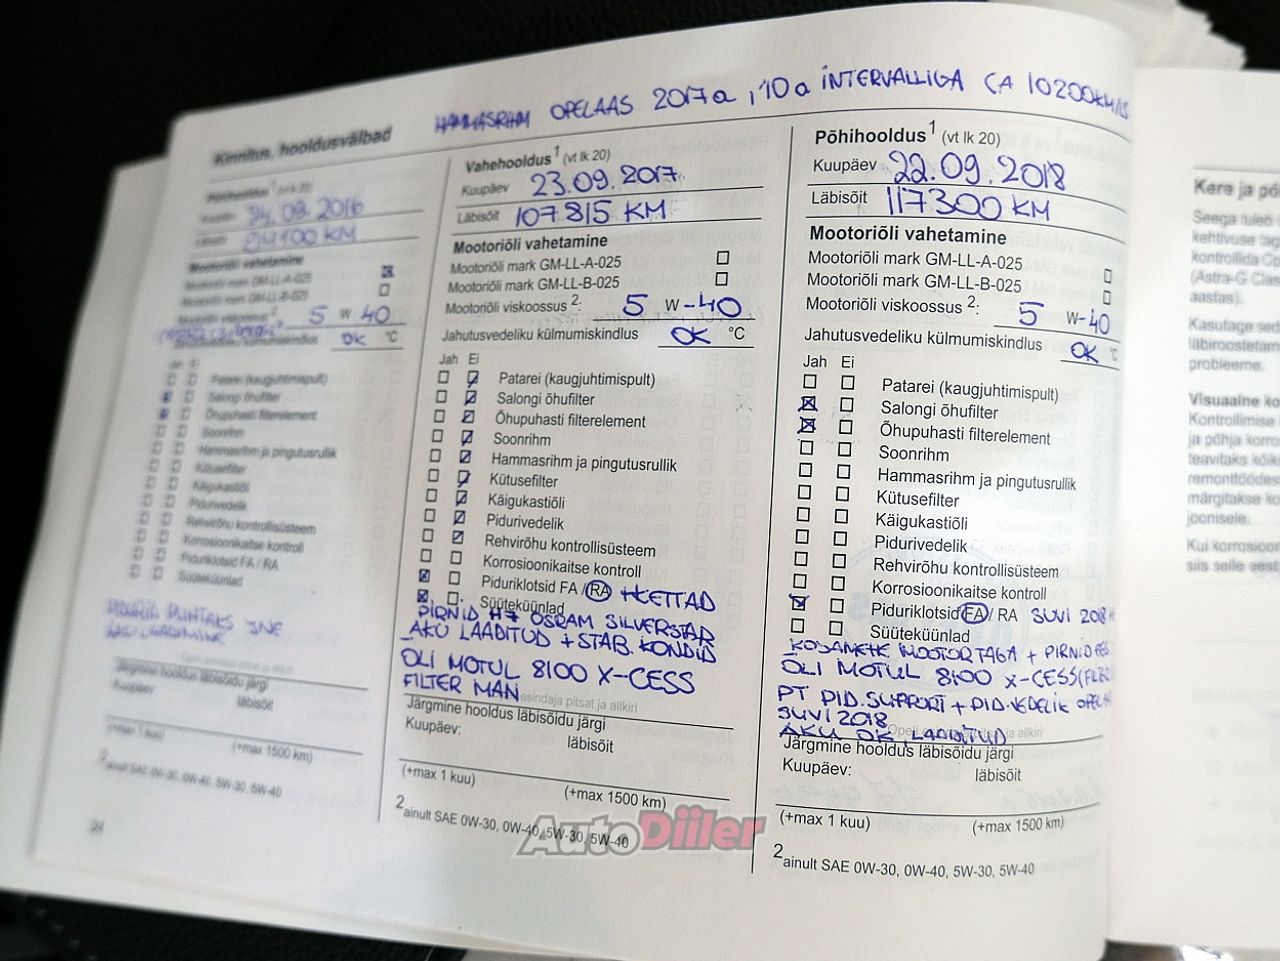 HAMMASRIHM OPELAAS 2017a, 10a INTERVALLIGA CA 10200KM/
Kinnitus, hooldusvälbad
Põhihooldus 1 (vt lk 20)
24.09.2016
KM
Mootoriõli vahetamine
Mootoriõli mark GM-LL-A-025
Mootoriõli mark GM-LL-B-025
5 W 40
Jahutusvedeliku külmumiskindlus OK °C
Jah Ei
Patarei (kaugjuhtimispult)
Salongi õhufilter
Õhupuhasti filterelement
Soonrihm
Hammasrihm ja pingutusrullik
Kütusefilter
Käigukastiõli
Pidurivedelik
Rehvirõhu kontrollisüsteem
Korrosioonikaitse kontroll
Piduriklotsid FA / RA
Süüteküünlad
PIDURID PUHTAKS JNE
AKU LAADIMINE
Järgmine hooldus läbisõidu järgi
Kuupäev:
läbisõit
(+max 1 kuu)
(+max 1500 km)
2 ainult SAE 0W-30, 0W-40, 5W-30, 5W-40
24
Vahehooldus 1 (vt lk 20)
Kuupäev 23.09.2017
Läbisõit 107815 KM
Mootoriõli vahetamine
Mootoriõli mark GM-LL-A-025
Mootoriõli mark GM-LL-B-025
Mootoriõli viskoossus 2: 5 W-40
Jahutusvedeliku külmumiskindlus OK °C
Jah Ei
Patarei (kaugjuhtimispult)
Salongi õhufilter
Õhupuhasti filterelement
Soonrihm
Hammasrihm ja pingutusrullik
Kütusefilter
Käigukastiõli
Pidurivedelik
Rehvirõhu kontrollisüsteem
Korrosioonikaitse kontroll
Piduriklotsid FA / RA +KETTAD
Süüteküünlad
PIRNID H7 OSRAM SILVERSTAR
AKU LAADITUD + STAB. KONDID
ÕLI MOTUL 8100 X-CESS
FILTER MAN
esindaja pitsat ja allkiri
Järgmine hooldus läbisõidu järgi
Kuupäev:
läbisõit
(+max 1 kuu)
(+max 1500 km)
2 ainult SAE 0W-30, 0W-40, 5W-30, 5W-40
Põhihooldus 1 (vt lk 20)
Kuupäev 22.09.2018
Läbisõit 117300 KM
Mootoriõli vahetamine
Mootoriõli mark GM-LL-A-025
Mootoriõli mark GM-LL-B-025
Mootoriõli viskoossus 2: 5 W-40
Jahutusvedeliku külmumiskindlus OK °C
Jah Ei
Patarei (kaugjuhtimispult)
Salongi õhufilter
Õhupuhasti filterelement
Soonrihm
Hammasrihm ja pingutusrullik
Kütusefilter
Käigukastiõli
Pidurivedelik
Rehvirõhu kontrollisüsteem
Korrosioonikaitse kontroll
Piduriklotsid FA / RA SUVI 2018
Süüteküünlad
MOOTOR TAGA + PIRNID
ÕLI MOTUL 8100 X-CESS
PT PID.SUPPORT + PID.VEDELIK
SUVI 2018
AKU OK, LAADITUD
Opeli esindaja pitsat ja allkiri
Järgmine hooldus läbisõidu järgi
Kuupäev:
läbisõit
(+max 1 kuu)
(+max 1500 km)
2 ainult SAE 0W-30, 0W-40, 5W-30, 5W-40
Kere ja põ
Seega tuleb
kehtivuse tag
kontrollida Co
(Astra-G Clas
aastas).
Kasutage sed
läbiroostetam
probleeme.
Visuaalne ko
Kontrollimise
ja põhja korro
teavitaks kõik
remonttöödes
märgitakse ko
joonisele.
Kui korrosioon
siis selle eest
AutoDiiler